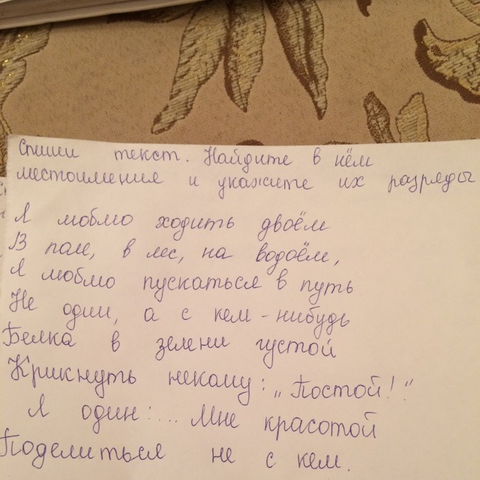 Спиши текст. Найдите в нём
местоимения и укажите их разряды
Я люблю ходить двоём
В поле, в лес, на водоём,
Я люблю пускаться в путь
Не один, а с кем-нибудь
Белка в зелени густой
Крикнуть некому: „Постой!"
Я один:... Мне красотой
Поделиться не с кем.